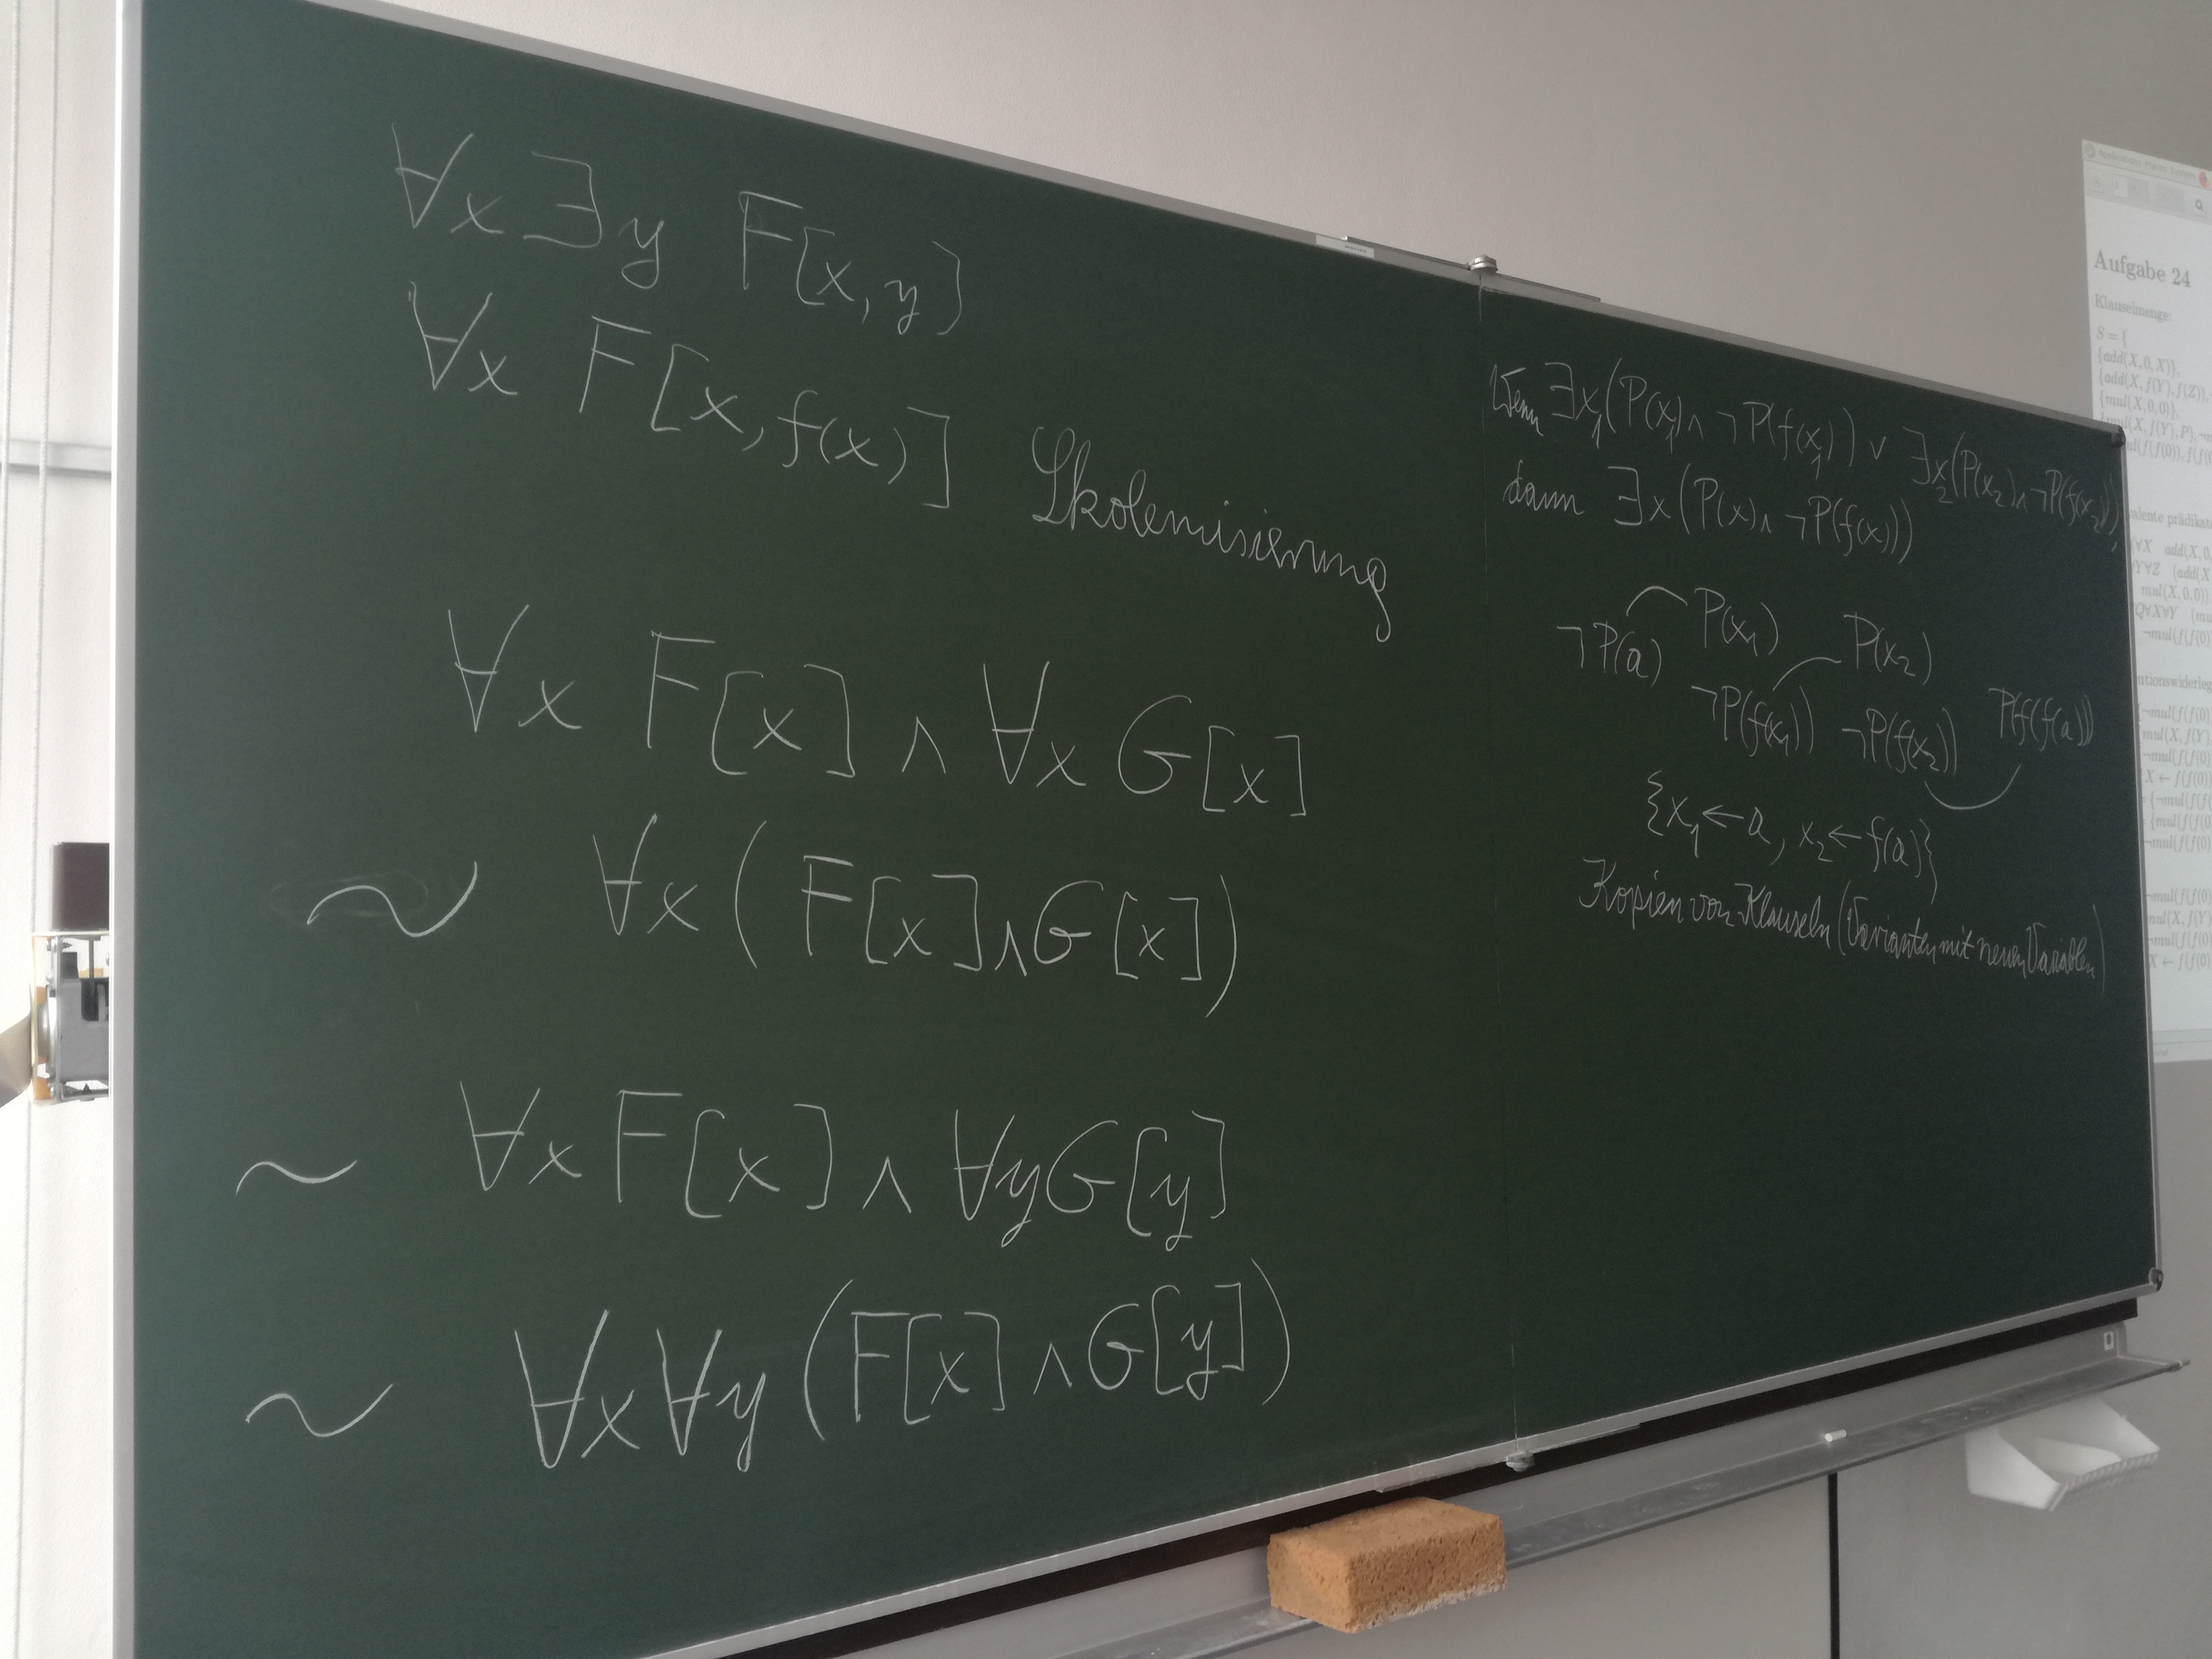 ∀x∃y F[x,y]
∀x F[x,f(x)] Skolemisierung
∀x F[x] ∧ ∀x G[x]
~ ∀x(F[x]∧G[x])
~ ∀xF[x] ∧ ∀yG[y]
~ ∀x∀y(F[x] ∧ G[y])
Wenn ∃x₁(P(x₁)∧ ¬P(f(x₁))) ∨ ∃x₂(P(x₂)∧¬P(f(x₂))),
dann ∃x(P(x)∧ ¬P(f(x)))
¬P(a) P(x₁) P(x₂)
¬P(f(x₁)) ¬P(f(x₂)) P(f(f(a)))
{x₁←a, x₂←f(a)}
Kopien von Klauseln (Varianten mit neuen Variablen)
Applications Places System
Aufgabe 24
Klauselmenge:
S = {
{add(X, 0, X)},
{add(X, f(Y), f(Z)),
{mul(X, 0, 0)},